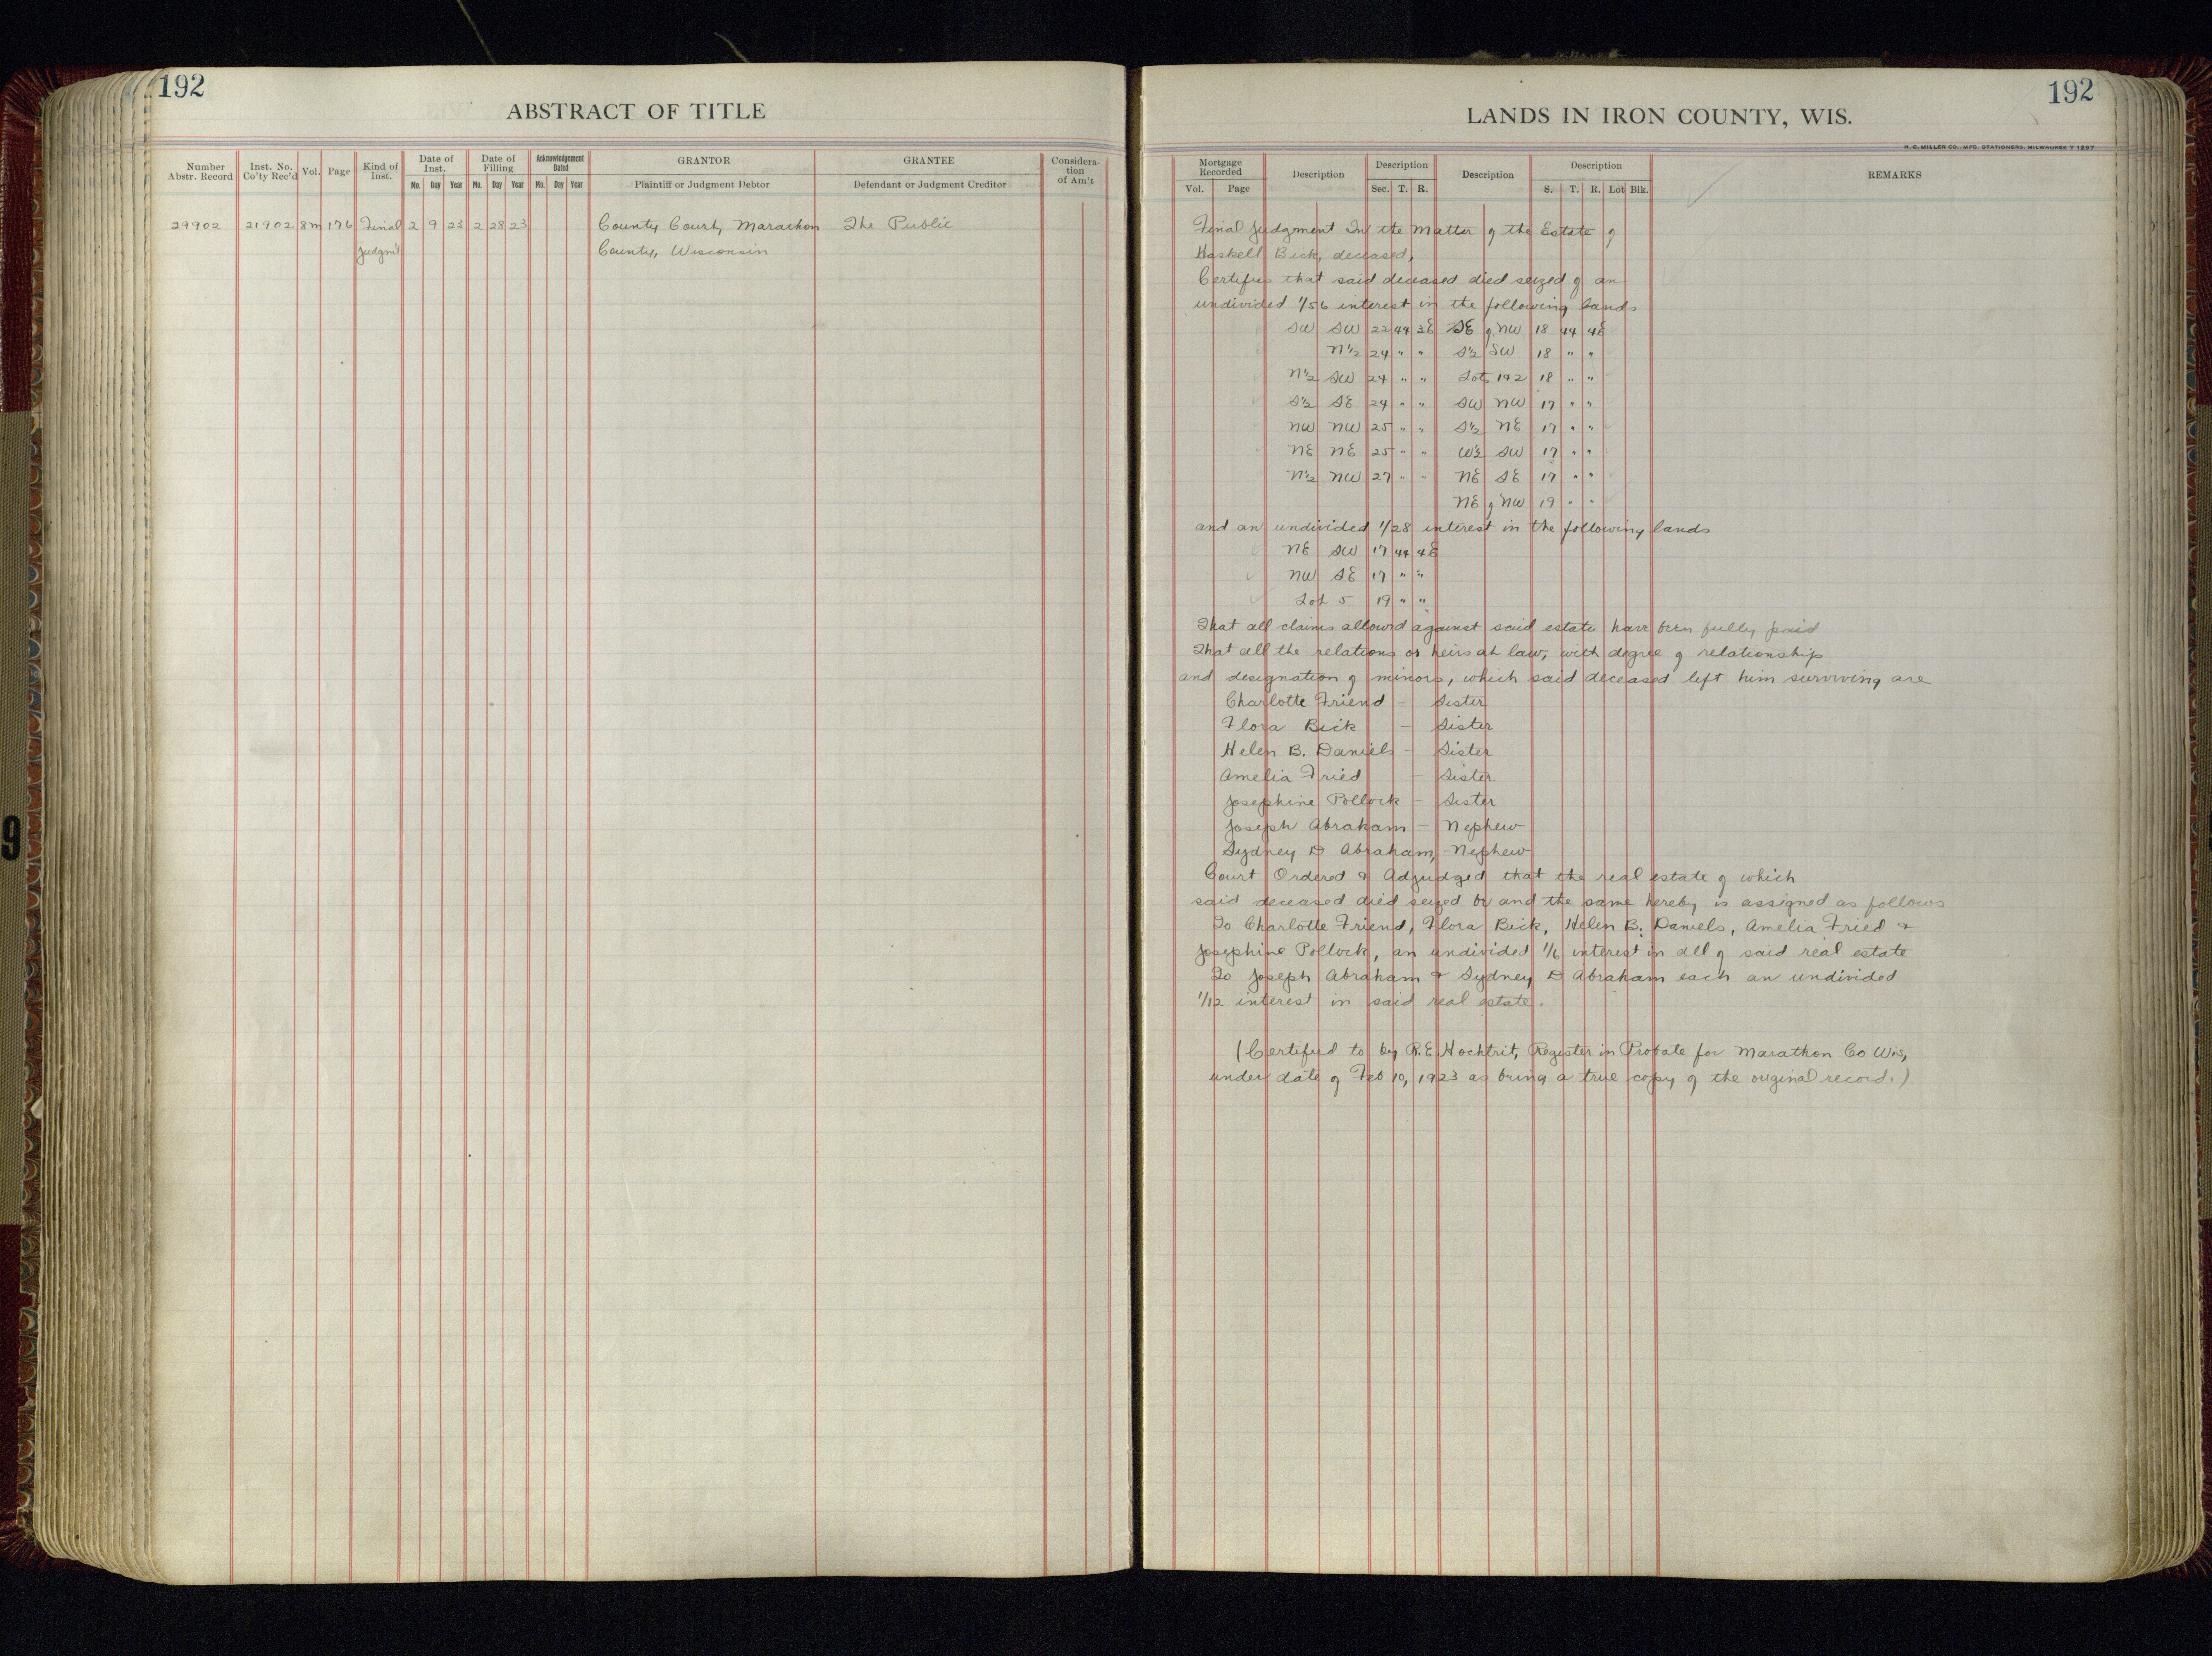 192
ABSTRACT OF TITLE
Number Abstr. Record Inst. No. Co'ty Rec'd Vol. Page Kind of Inst. Date of Inst. Date of Filling Acknowledgement Dated GRANTOR GRANTEE Considera-tion of Am't
Mo. Day Year Mo. Day Year Mo. Day Year Plaintiff or Judgment Debtor Defendant or Judgment Creditor
29902 21902 8m 176 Final 2 9 23 2 28 23 County Court, Marathon The Public
Judgm't County, Wisconsin
192
LANDS IN IRON COUNTY, WIS.
H. C. MILLER CO., MFG. STATIONERS, MILWAUKEE
Mortgage Recorded Description Description Description Description REMARKS
Vol. Page Sec. T. R. S. T. R. Lot Blk.
Final Judgment In the Matter of the Estate of
Haskell Bick, deceased,
Certifies that said deceased died seized of an
undivided 1/56 interest in the following lands
SW SW 22 44 3E SE of NW 18 44 4E
N½ 24 " " S½ SW 18 " "
N½ SW 24 " " Lots 1 & 2 18 " "
S½ SE 24 " " SW NW 17 " "
NW NW 25 " " S½ NE 17 " "
NE NE 25 " " W½ SW 17 " "
N½ NW 27 " " NE SE 17 " "
NE of NW 19 " "
and an undivided 1/28 interest in the following lands
NE SW 17 44 4E
NW SE 17 " "
Lot 5 19 " "
That all claims allowed against said estate have been fully paid
That all the relations or heirs at law, with degree of relationship
and designation of minors, which said deceased left him surviving are
Charlotte Friend - Sister
Flora Bick - Sister
Helen B. Daniels - Sister
Amelia Fried - Sister
Josephine Pollock - Sister
Joseph Abraham - Nephew
Sydney D Abraham, - Nephew
Court Ordered & Adjudged that the real estate of which
said deceased died seized be and the same hereby is assigned as follows
To Charlotte Friend, Flora Bick, Helen B. Daniels, Amelia Fried &
Josephine Pollock, an undivided 1/6 interest in all of said real estate
To Joseph Abraham & Sydney D Abraham each an undivided
1/12 interest in said real estate.
(Certified to by R.E. Hochtrit, Register in Probate for Marathon Co Wis,
under date of Feb 10, 1923 as being a true copy of the original record.)
9